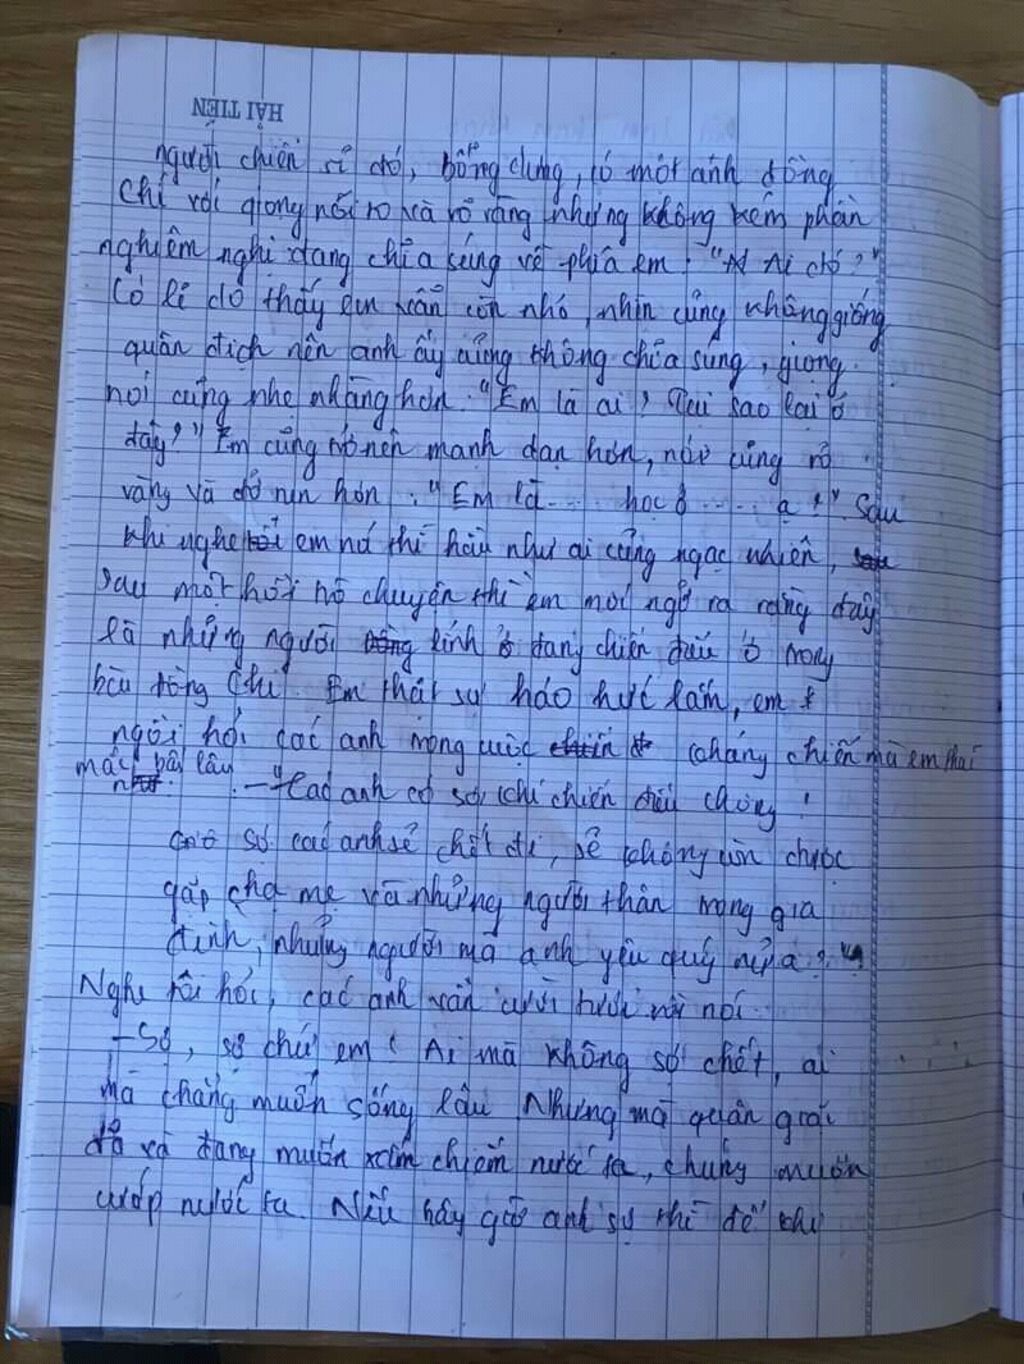 HẢI TIẾN
người chiến sĩ đó, bỗng dưng, có một anh đồng
chí với giọng nói to và rõ ràng nhưng không kém phần
nghiêm nghị đang chĩa súng về phía em: "Ai chó?"
Có lẽ do thấy em vẫn còn nhỏ, nhìn cũng không giống
quân địch nên anh ấy cũng không chĩa súng, giọng
nói cũng nhẹ nhàng hơn: "Em là ai? Tại sao lại ở
đây?" Em cũng trở nên mạnh dạn hơn, nói cũng rõ
ràng và to hơn: "Em là.... học ở .... ạ!" Sau
khi nghe em nói thì hầu như ai cũng ngạc nhiên,
sau một hồi trò chuyện thì em mới ngỡ ra rằng đây
là những người lính đang chiến đấu ở trong
bài Đồng Chí. Em thật sự háo hức lắm, em
ngồi hỏi các anh trong cuộc kháng chiến mà em thắc
mắc bấy lâu. - "Các anh có sợ khi chiến đấu không!
Có sợ các anh sẽ chết đi, sẽ không còn được
gặp cha mẹ và những người thân trong gia
đình, những người mà anh yêu quý nữa?"
Nghe tôi hỏi, các anh vẫn cười tươi rồi nói:
- Sợ, sợ chứ em! Ai mà không sợ chết, ai
mà chẳng muốn sống lâu. Nhưng mà quân giặc
đã và đang muốn xâm chiếm nước ta, chúng muốn
cướp nước ta. Nếu bây giờ anh sợ thì để khi